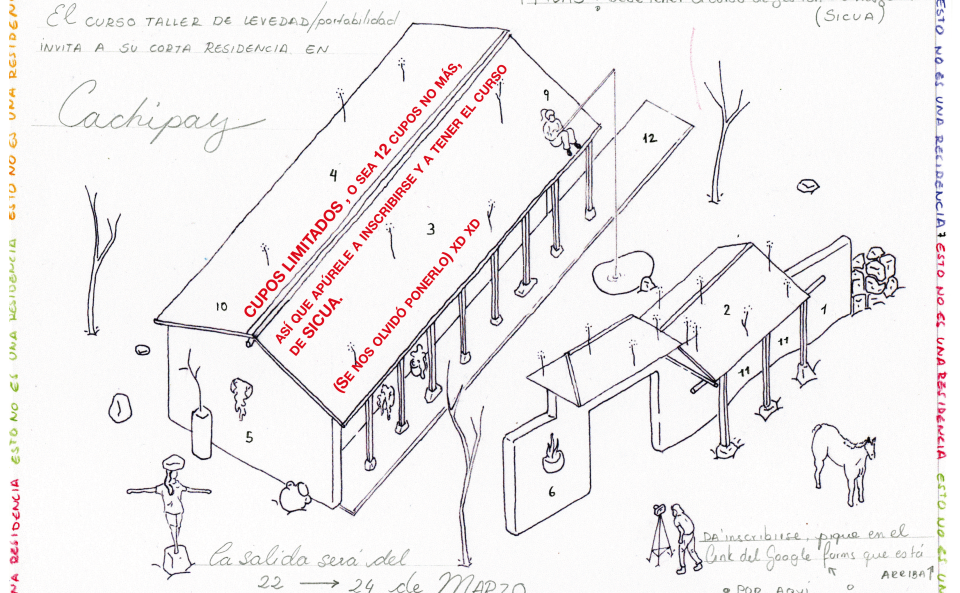 El CURSO TALLER DE LEVEDAD/portabilidad
INVITA A SU CORTA RESIDENCIA EN
Cachipay
(SICUA)
CUPOS LIMITADOS , O SEA 12 CUPOS NO MÁS,
ASÍ QUE APÚRELE A INSCRIBIRSE Y A TENER EL CURSO
DE SICUA.
(SE NOS OLVIDÓ PONERLO) XD XD
9
12
4
3
10
2
1
11
11
5
6
la salida será del
22 → 24 de MARZO
PA' inscribirse, pique en el
link del Google forms que está
ARRIBA↑
° POR AQUÍ °
ESTO NO ES UNA RESIDENCIA
ESTO NO ES UNA RESIDENCIA
NA RESIDENCIA
ESTO NO ES UNA RESIDENCIA
ESTO NO ES UNA RESIDENCIA
ESTO NO ES UN